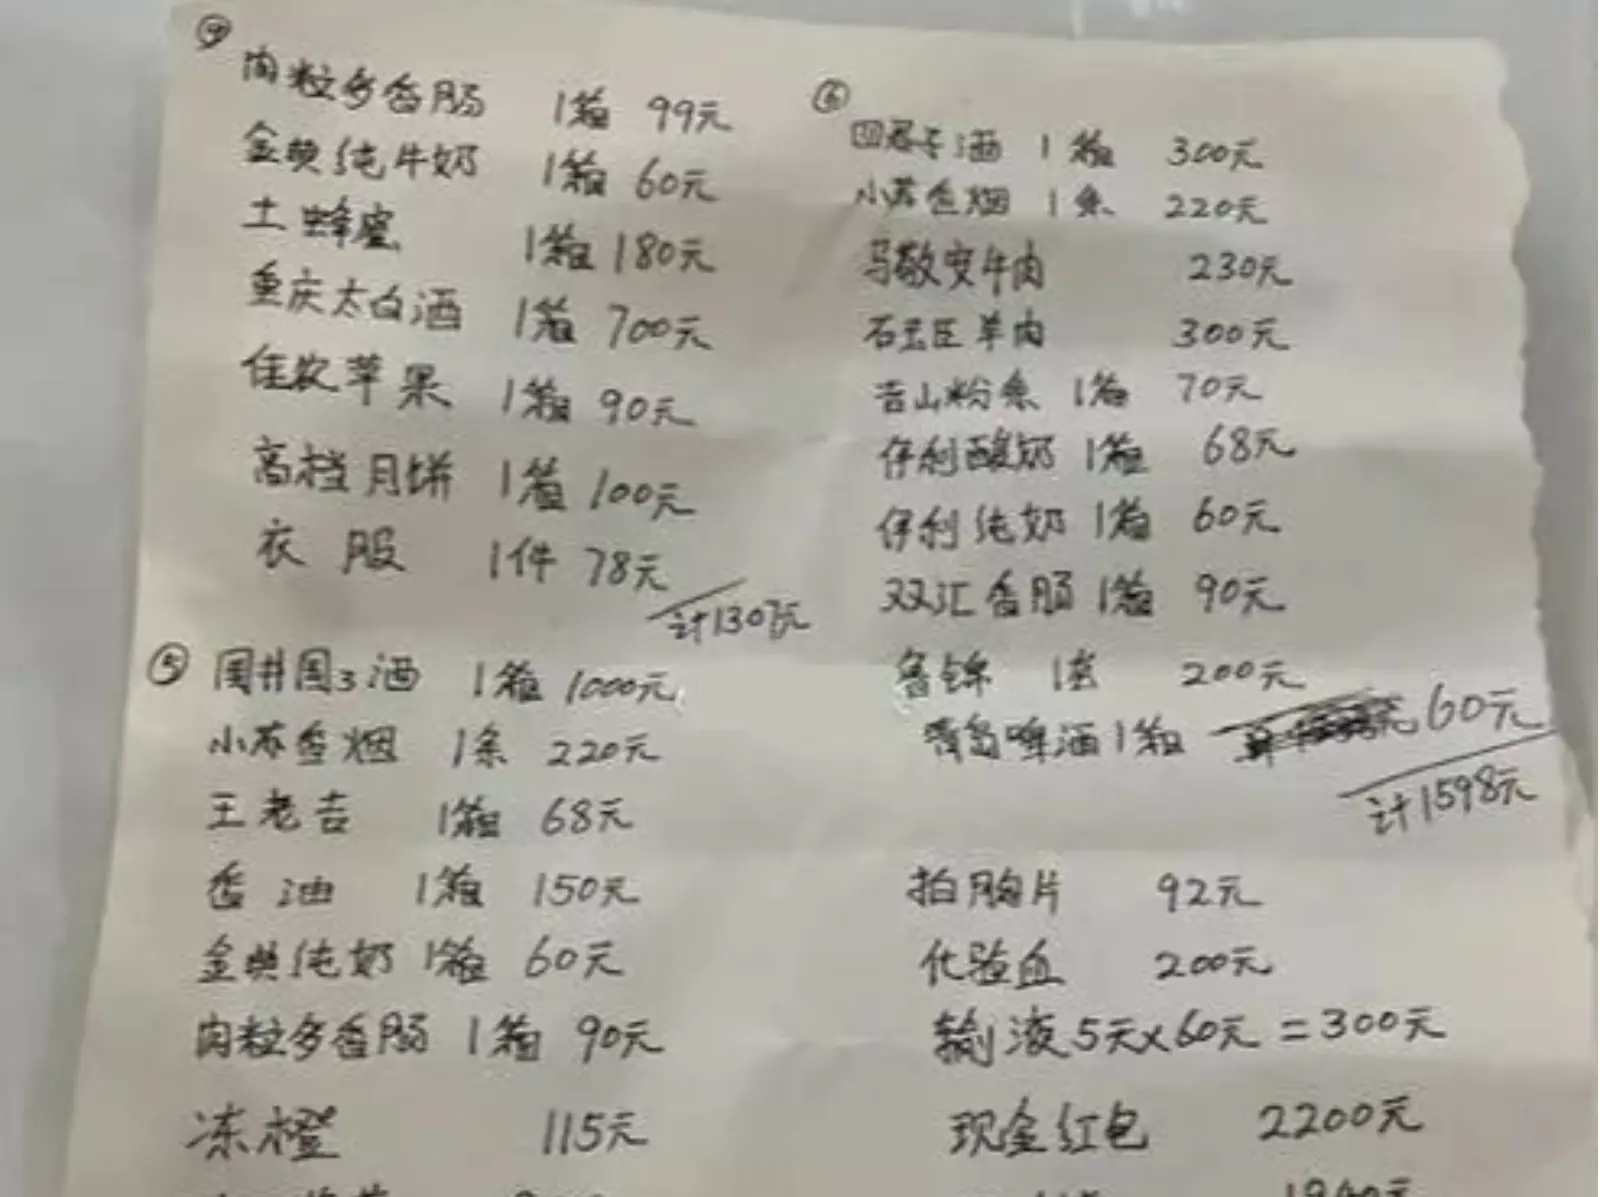 ④
肉粒多香肠 1箱 99元
金典纯牛奶 1箱 60元
土蜂蜜 1箱 180元
重庆太白酒 1箱 700元
佳农苹果 1箱 90元
高档月饼 1箱 100元
衣服 1件 78元
计1307元
⑤ 国井国3酒 1箱 1000元
小苏香烟 1条 220元
王老吉 1箱 68元
香油 1箱 150元
金典纯奶 1箱 60元
肉粒多香肠 1箱 90元
冻橙 115元
⑥
四君子酒 1箱 300元
小苏香烟 1条 220元
马敬安牛肉 230元
羊肉 300元
吉山粉条 1箱 70元
伊利酸奶 1箱 68元
伊利纯奶 1箱 60元
双汇香肠 1箱 90元
鲁锦 200元
青岛啤酒 1箱 60元
计1598元
拍胸片 92元
化验血 200元
输液5天×60元=300元
现金红包 2200元